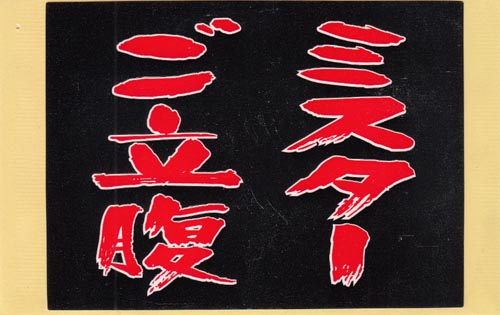 ミスター
ご立腹